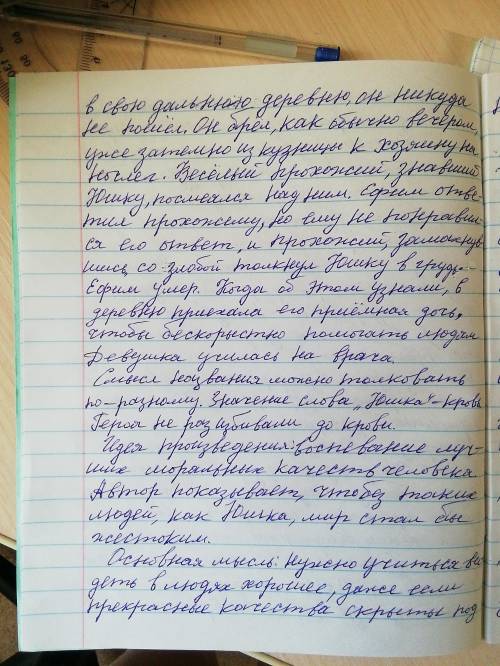 в свою дальнюю деревню, он никуда
не пошёл. Он брел, как обычно вечером,
уже затемно из кузницы к хозяину на
ночлег. Весёлый прохожий, знавший
Юшку, посмеялся над ним. Ефим отве-
тил прохожему, но ему не понрави-
ся его ответ, и прохожий, замахнув-
шись, со злобой толкнул Юшку в грудь.
Ефим умер. Когда об этом узнали, в
деревню приехала его приёмная дочь,
чтобы бескорыстно помогать людям.
Девушка училась на врача.
Смысл названия можно толковать
по-разному. Значение слова "Юшка" - кровь.
Героя не раз избивали до крови.
Идея произведения: воспевание луч-
ших моральных качеств человека.
Автор показывает, что без таких
людей, как Юшка, мир стал бы
жестоким.
Основная мысль: нужно учиться ви-
деть в людях хорошее, даже если
прекрасные качества скрыты под